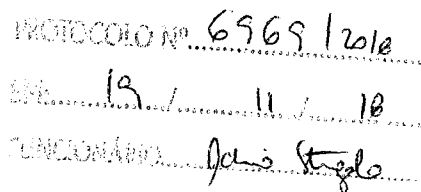 PROTOCOLO Nº 6969 / 2018
EM: 19 / 11 / 18
FUNCIONÁRIO